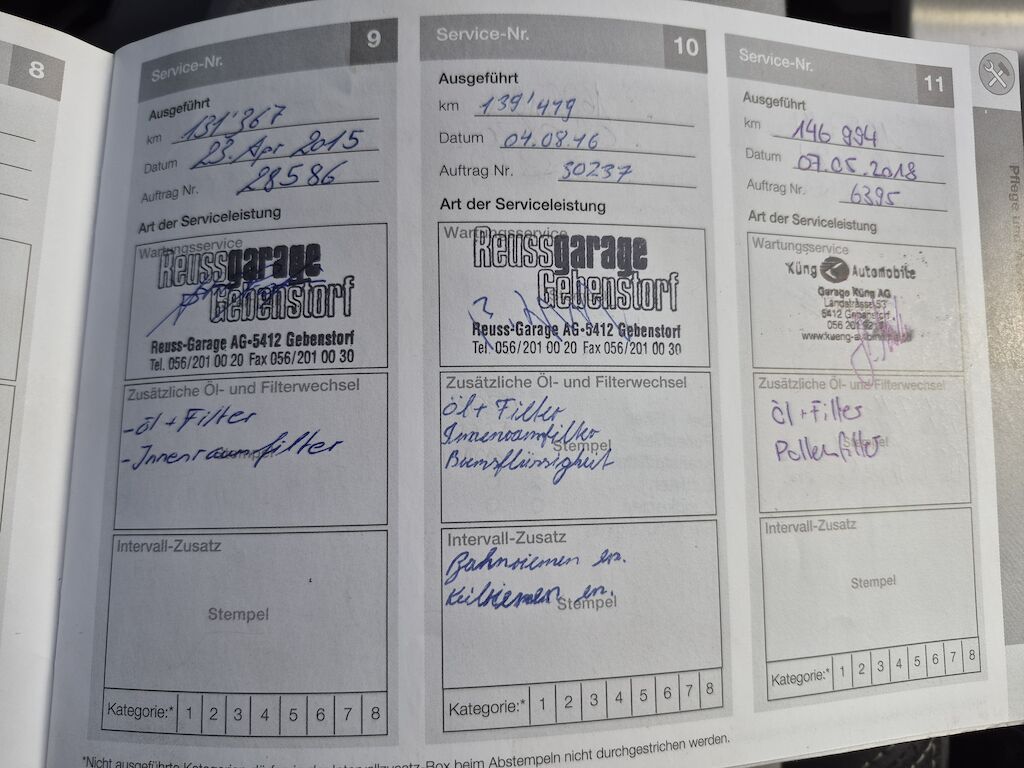 8
Service-Nr. 9
Ausgeführt
km 131'367
Datum 23. Apr 2015
Auftrag Nr. 28586
Art der Serviceleistung
Wartungsservice
Reussgarage
Gebenstorf
Reuss-Garage AG•5412 Gebenstorf
Tel. 056/201 00 20 Fax 056/201 00 30
Zusätzliche Öl- und Filterwechsel
- Öl + Filter
- Innenraumfilter
Stempel
Intervall-Zusatz
Stempel
Kategorie:* 1 2 3 4 5 6 7 8
Service-Nr. 10
Ausgeführt
km 139'419
Datum 04.08.16
Auftrag Nr. 30237
Art der Serviceleistung
Wartungsservice
Reussgarage
Gebenstorf
Reuss-Garage AG•5412 Gebenstorf
Tel. 056/201 00 20 Fax 056/201 00 30
Zusätzliche Öl- und Filterwechsel
Öl + Filter
Innenraumfilter
Stempel
Bremsflüssigkeit
Intervall-Zusatz
Zahnriemen en.
Keilriemen en.
Stempel
Kategorie:* 1 2 3 4 5 6 7 8
Service-Nr. 11
Ausgeführt
km 146 994
Datum 07.05.2018
Auftrag Nr. 6395
Art der Serviceleistung
Wartungsservice
Küng Automobile
Garage Küng AG
Landstrasse 53
5412 Gebenstorf
056 201
Zusätzliche Öl- und Filterwechsel
Öl + Filter
Pollenfilter
Stempel
Intervall-Zusatz
Stempel
Kategorie:* 1 2 3 4 5 6 7 8
Pflege und
*Nicht ausgeführte Kategorien Intervallzusatz-Box beim Abstempeln nicht durchgestrichen werden.